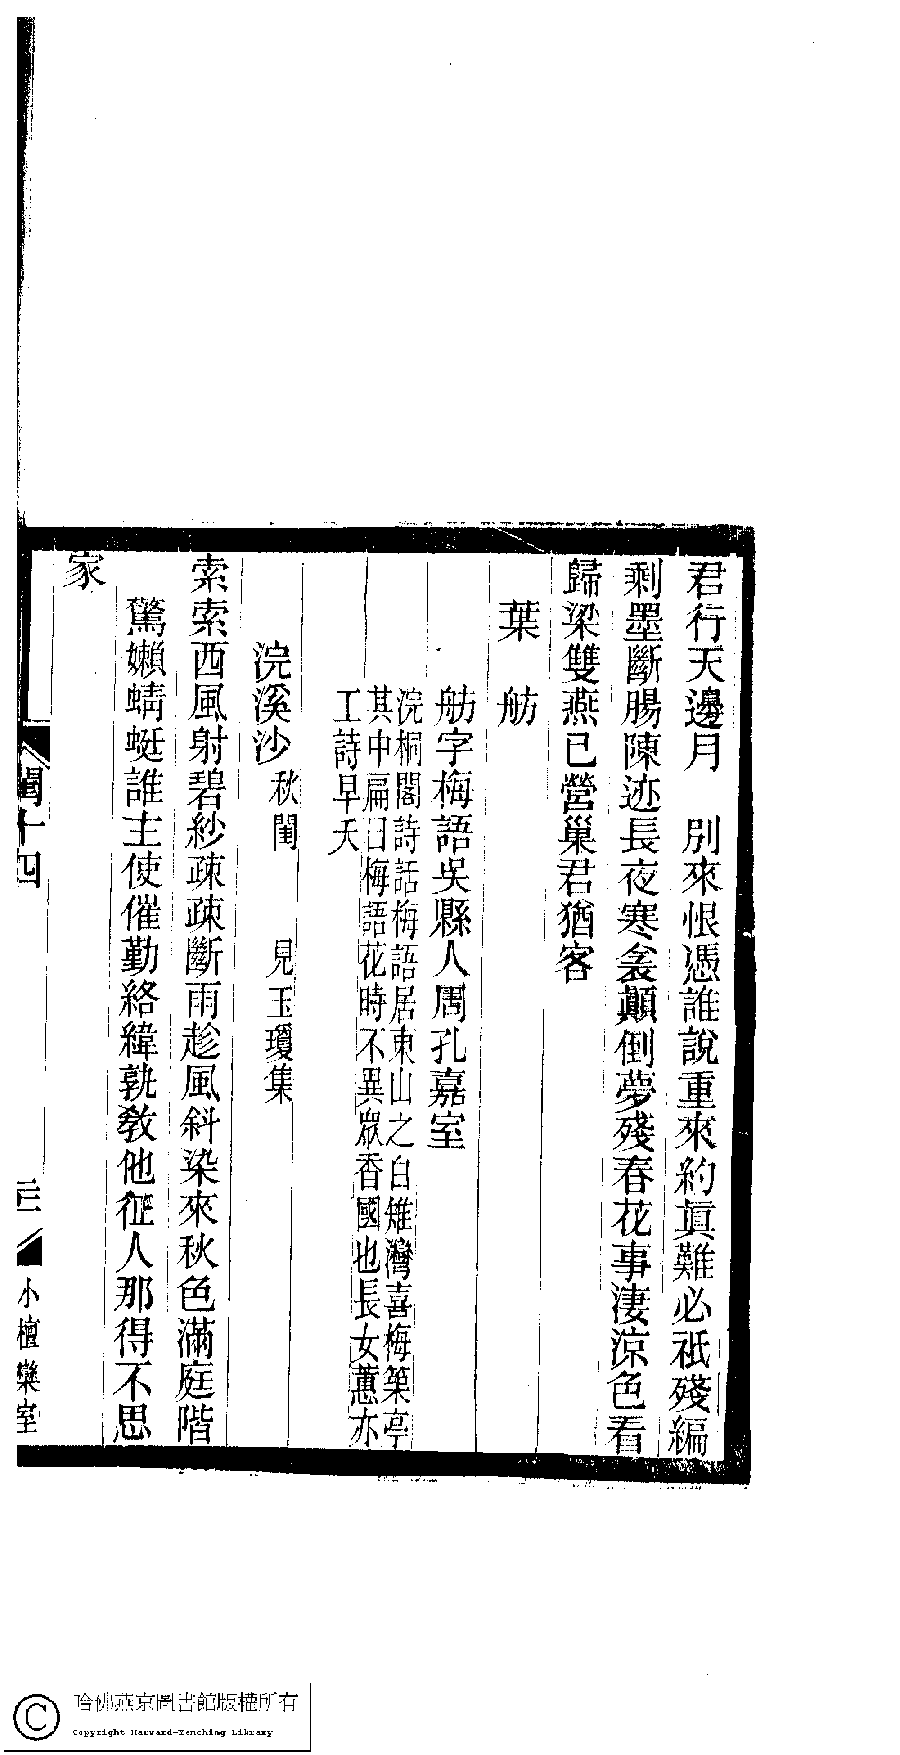 君行天邊月　別來恨憑誰說重來約眞難必祇殘編
剩墨斷腸陳迹長夜寒衾顚倒夢殘春花事淒涼色看
歸梁雙燕已營巢君猶客
葉　舫
舫字梅語吳縣人周孔嘉室
浣桐閣詩話梅語居東山之白雉灣喜梅築亭
其中扁曰梅語花時不異眾香國也長女蕙亦
工詩早夭
浣溪沙　秋閨　見玉瓊集
索索西風射碧紗疎疎斷雨趁風斜染來秋色滿庭階
驚嬾蜻蜓誰主使催勤絡緯孰敎他征人那得不思
家
閨十四
三
小檀欒室
哈佛燕京圖書館版權所有
Copyright Harvard-Yenching Library